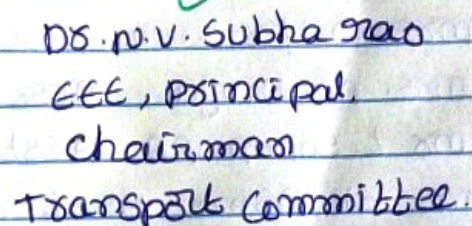 Dr. N. V. Subha rao
EEE, Principal.
Chairman
Transport Committee.